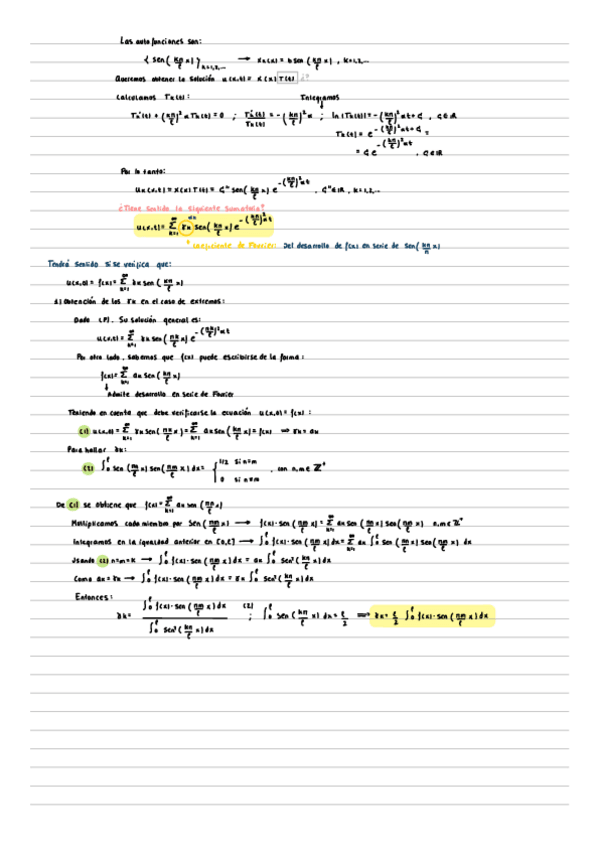 Las autofunciones son:
{ sen( kπ/ℓ x) }k=1,2,... → Xk(x) = b sen( kπ/ℓ x) , k=1,2,...
Queremos obtener la solución u(x,t) = X(x) T(t) ¿?
Calculamos Tk(t): Integramos
Tk'(t) + (kπ/ℓ)² α Tk(t) = 0 ; Tk'(t)/Tk(t) = -(kπ/ℓ)² α ; ln(Tk(t)) = -(kπ/ℓ)² αt + C , C∈ℝ
Tk(t) = e^-(kπ/ℓ)² αt + C =
= C e^-(kπ/ℓ)² αt , C∈ℝ
Por lo tanto:
uk(x,t) = X(x) T(t) = C'' sen( kπ/ℓ x) e^-(kπ/ℓ)² αt , C''∈ℝ, k=1,2,...
¿Tiene sentido la siguiente sumatoria?
u(x,t) = ∑k=1^∞ γk sen( kπ/ℓ x) e^-(kπ/ℓ)² αt
* Coeficiente de Fourier: Del desarrollo de f(x) en serie de sen( kπ/n x)
Tendrá sentido si se verifica que:
u(x,0) = f(x) = ∑k=1^∞ γk sen( kπ/ℓ x)
Obtención de los γk en el caso de extremos:
Dado (P). Su solución general es:
u(x,t) = ∑k=1^∞ γk sen( πk/ℓ x) e^-(πk/ℓ)² αt
Por otro lado, sabemos que f(x) puede escribirse de la forma:
f(x) = ∑k=1^∞ ak sen( kπ/ℓ x)
↓ Admite desarrollo en serie de Fourier
Teniendo en cuenta que debe verificarse la ecuación u(x,0) = f(x) :
(1) u(x,0) = ∑k=1^∞ γk sen( πk/ℓ x) = ∑k=1^∞ ak sen( kπ/ℓ x) = f(x) ⟹ γk = ak
Para hallar γk:
(2) ∫0^ℓ sen( πm/ℓ x) sen( πm/ℓ x) dx = { 1/2 si n=m , con n,m ∈ ℤ⁺
0 si n≠m
De (1) se obtiene que f(x) = ∑k=1^∞ ak sen( πn/ℓ x)
Multiplicamos cada miembro por sen( πm/ℓ x) → f(x)·sen( πm/ℓ x) = ∑k=1^∞ ak sen( πn/ℓ x) sen( πm/ℓ x) n,m ∈ ℤ⁺
Integramos en la igualdad anterior en [0,ℓ] → ∫0^ℓ f(x)·sen( πm/ℓ x) dx = ∑k=1^∞ ak ∫0^ℓ sen( πn/ℓ x) sen( πm/ℓ x) dx
Usando (2) n=m=k → ∫0^ℓ f(x)·sen( πm/ℓ x) dx = ak ∫0^ℓ sen²( kπ/ℓ x) dx
Como ak = γk → ∫0^ℓ f(x)·sen( πm/ℓ x) dx = γk ∫0^ℓ sen²( kπ/ℓ x) dx
Entonces:
γk = ∫0^ℓ f(x)·sen( πm/ℓ x) dx / ∫0^ℓ sen²( kπ/ℓ x) dx ; (2) ∫0^ℓ sen( kπ/ℓ x) dx = ℓ/2 ⟹ γk = ℓ/2 ∫0^ℓ f(x)·sen( πm/ℓ x) dx